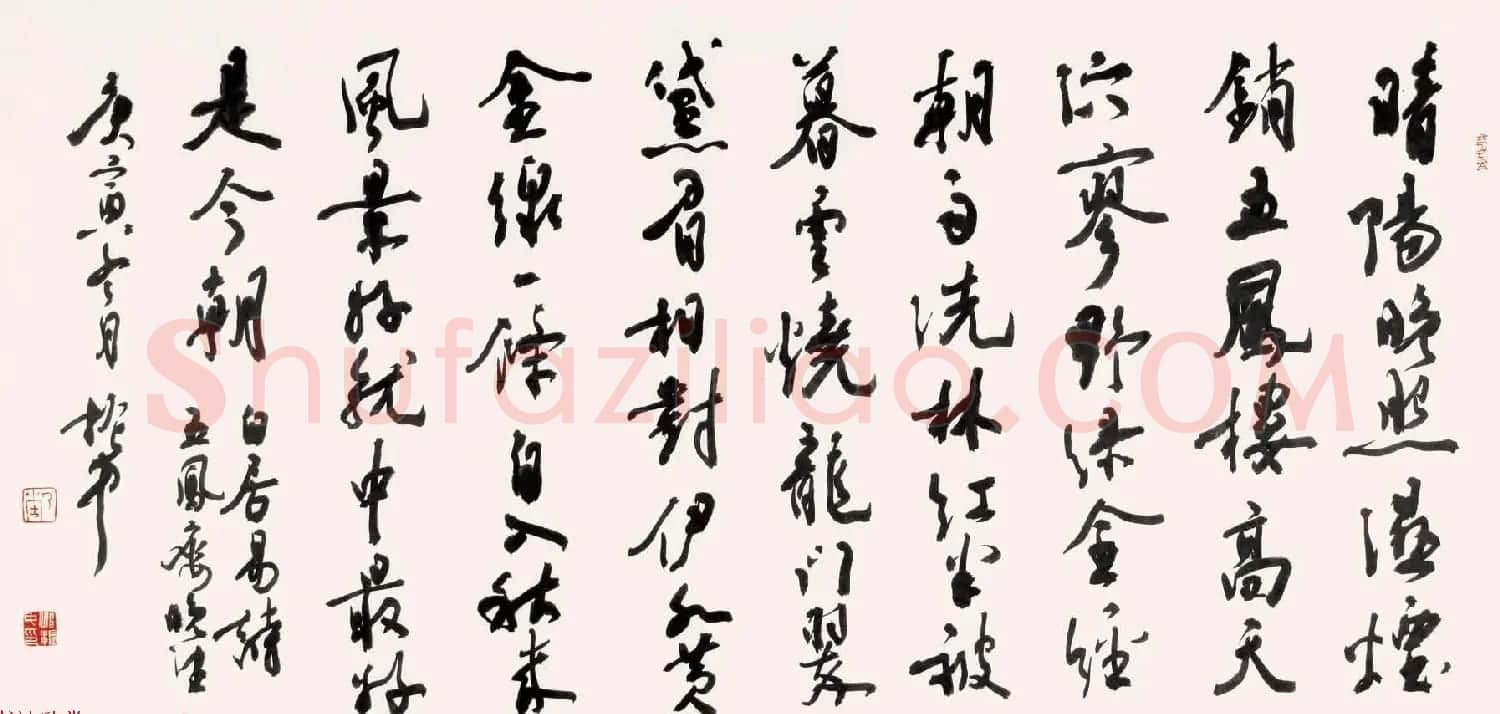 晴陽晚照濕煙
銷五鳳樓高天
泬寥野綠全經
朝雨洗林紅半被
暮雲燒龍門翠
黛眉相對伊水黃
金線一條自入秋來
風景好就中最好
是今朝
白居易詩
五鳳樓晚望
庚寅冬月
Shufaziliao.COM